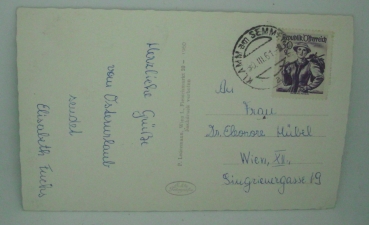 Herzliche Grüße
vom Osterurlaub
sendet
Elisabeth Fuchs
KLAMM am SEMMERING
Republik Österreich
An
Frau
Dr. Eleonore Hübel
Wien, XII.
Singrienergasse 19